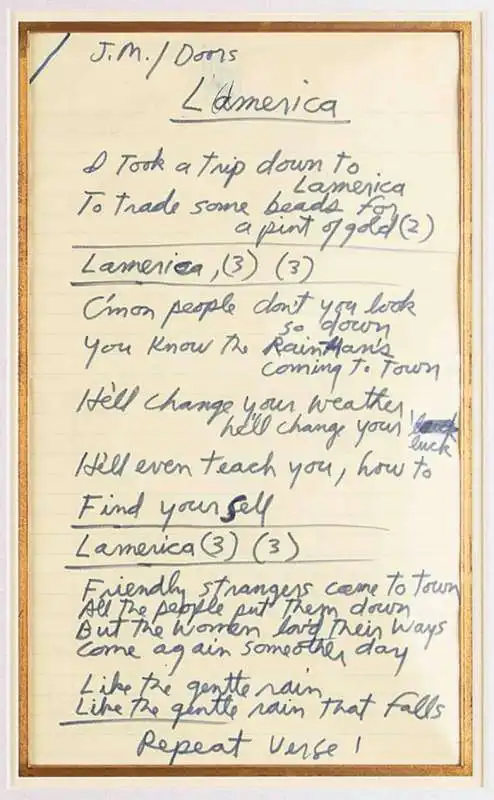 J.M./Doors
L'America
I Took a trip down to
Lamerica
To trade some beads for
a pint of gold (2)
Lamerica, (3) (3)
C'mon people don't you look
so down
You know the RainMan's
coming to Town
He'll change your weather,
he'll change your
luck
He'll even teach you, how to
Find yourself
Lamerica (3) (3)
Friendly strangers came to town
All the people put them down
But the women love Their Ways
Come again someother day
Like the gentle rain
Like the gentle rain that falls
Repeat Verse 1